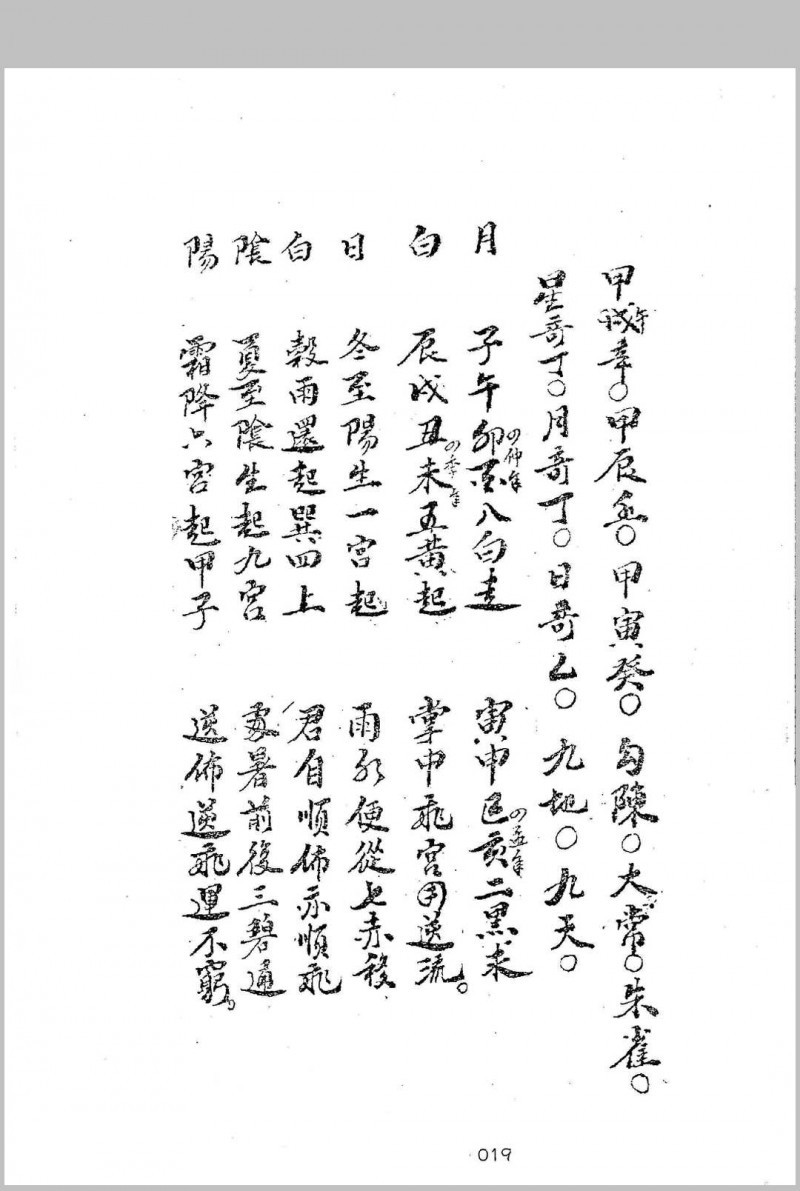 甲戌午辛○甲辰壬○甲寅癸○勾陳○大常○朱雀○
星奇丁○月奇丁○日奇乙○九地○九天○
月 子午卯酉四仲年八白走 寅申巳亥四孟年二黑求
白 辰戌丑未四季年五黄起 掌中飛宮用逆流。
日 冬至陽生一宮起 雨水便從七赤移
白 穀雨還起巽四上 君自順佈亦順飛
陰 夏至陰生起九宮 處暑前後三碧逼
陽 霜降六宮起甲子 逆佈逆飛運不窮。
019